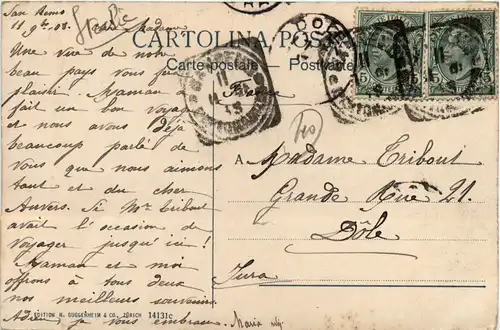 San Remo
11 9bre 08. Chère Madame
Une vue de notre
beau pays vous fera
plaisir. Maman a
fait un bon voyage
et nous avons déjà
beaucoup parlé de
Vous que nous aimons
tant et du cher
Anvers. Si Mr Tribout
avait l'occasion de
voyager jusqu'ici !
Maman et moi
offrons à tous deux
nos meilleurs souvenirs.
Adieu, je vous embrasse. Maria
CARTOLINA POS
Carte postale Postkarte
France
A Madame Tribout
Grande Rue 21.
Dôle
Jura
EDITION H. GUGGENHEIM & CO., ZÜRICH 14131c
DOLE
5 5 5
40